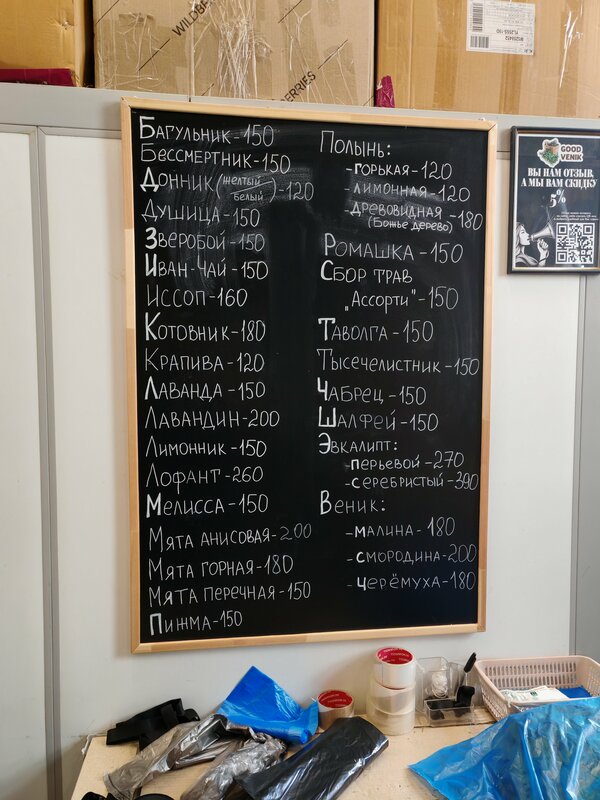 WILDBERRIES
Багульник-150
Бессмертник-150
Донник (желтый
белый)-120
Душица-150
Зверобой-150
Иван-чай-150
Иссоп-160
Котовник-180
Крапива-120
Лаванда-150
Лавандин-200
Лимонник-150
Лофант-260
Мелисса-150
Мята анисовая-200
Мята горная-180
Мята перечная-150
Пижма-150
Полынь:
-горькая-120
-лимонная-120
-древовидная-180
(Божье дерево)
Ромашка-150
Сбор трав
„Ассорти"-150
Таволга-150
Тысечелистник-150
Чабрец-150
Шалфей-150
Эвкалипт:
-перьевой-270
-серебристый-390
Веник:
-малина-180
-смородина-200
-черёмуха-180
GOOD
VENIK
ВЫ НАМ ОТЗЫВ,
А МЫ ВАМ СКИДКУ
5%